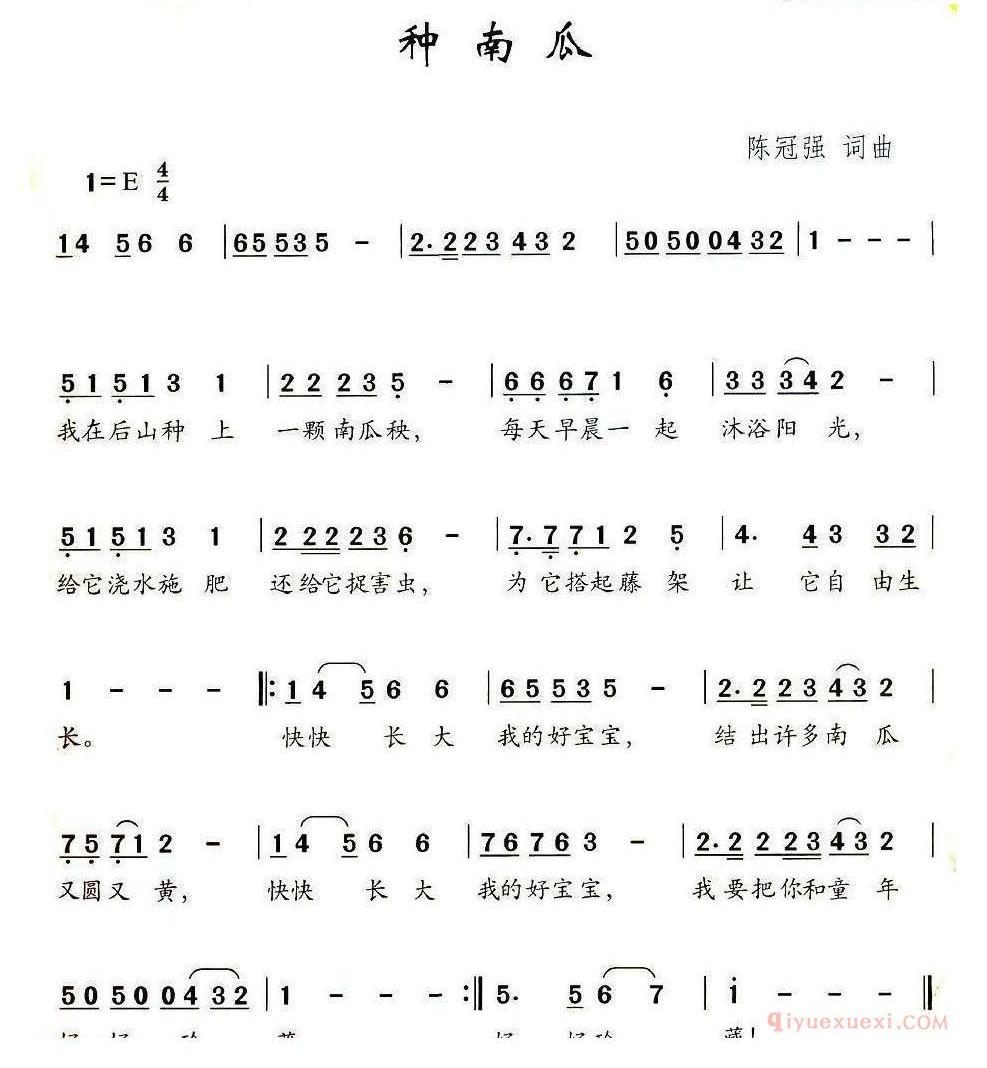 种南瓜
陈冠强 词曲
1=E 4/4
14 56 6 | 65 53 5 - | 2. 2 23 43 2 | 50 50 04 32 | 1 - - - |
51 51 3 1 | 22 23 5 - | 66 67 1 6 | 33 34 2 - |
我在后山种 上 一颗南瓜秧， 每天早晨一 起 沐浴阳 光，
51 51 3 1 | 2 22 23 6 - | 7. 7 71 2 5 | 4. 43 32 |
给它浇水施 肥 还给它捉害虫， 为它搭起藤 架 让 它自 由生
1 - - - |: 14 56 6 | 65 53 5 - | 2. 2 23 43 2 |
长。 快快 长 大 我的好宝宝， 结出许多南 瓜
75 71 2 - | 14 56 6 | 76 76 3 - | 2. 2 2 23 43 2 |
又圆又 黄， 快快 长 大 我的好宝宝， 我要把你和童 年
50 50 04 32 | 1 - - - :| 5. 56 7 | 1 - - - ||
藏！
qiyuexuexi.COM